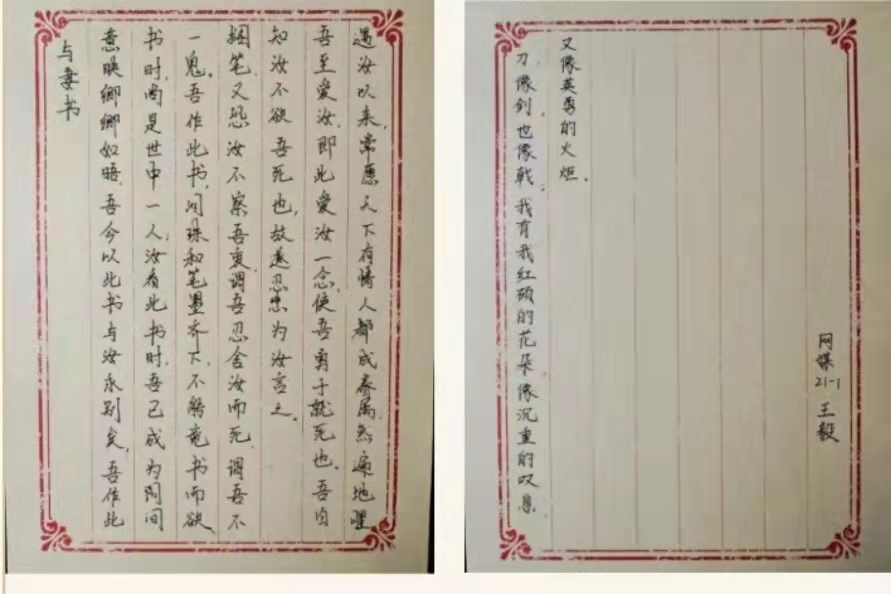 与妻书
意映卿卿如晤，吾今以此书与汝永别矣，吾作此
书时，尚是世中一人，汝看此书时，吾已成为阴间
一鬼。吾作此书，泪珠和笔墨齐下，不能竟书而欲
搁笔，又恐汝不察吾衷，谓吾忍舍汝而死，谓吾不
知汝不欲吾死也，故遂忍悲为汝言之。
吾至爱汝，即此爱汝一念，使吾勇于就死也。吾自
遇汝以来，常愿天下有情人都成眷属，然遍地腥
刀，像剑，也像戟，我有我红硕的花朵像沉重的叹息
又像英勇的火炬。
网媒21-1 王毅